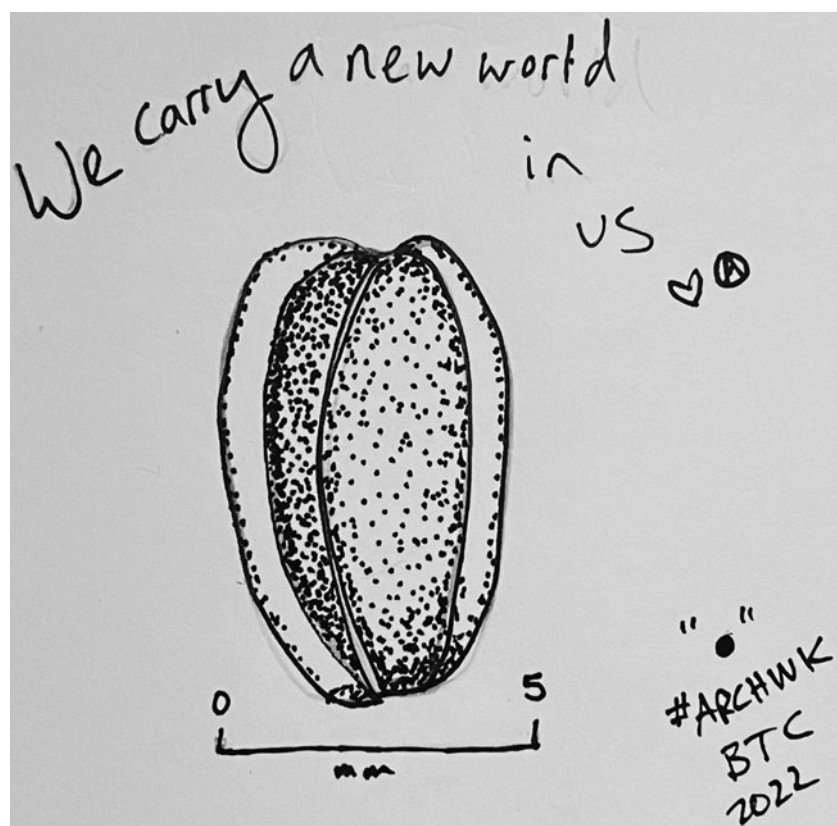 We carry a new world
in
us
♡ Ⓐ
0 5
mm
" • "
#ARCHWK
BTC
2022